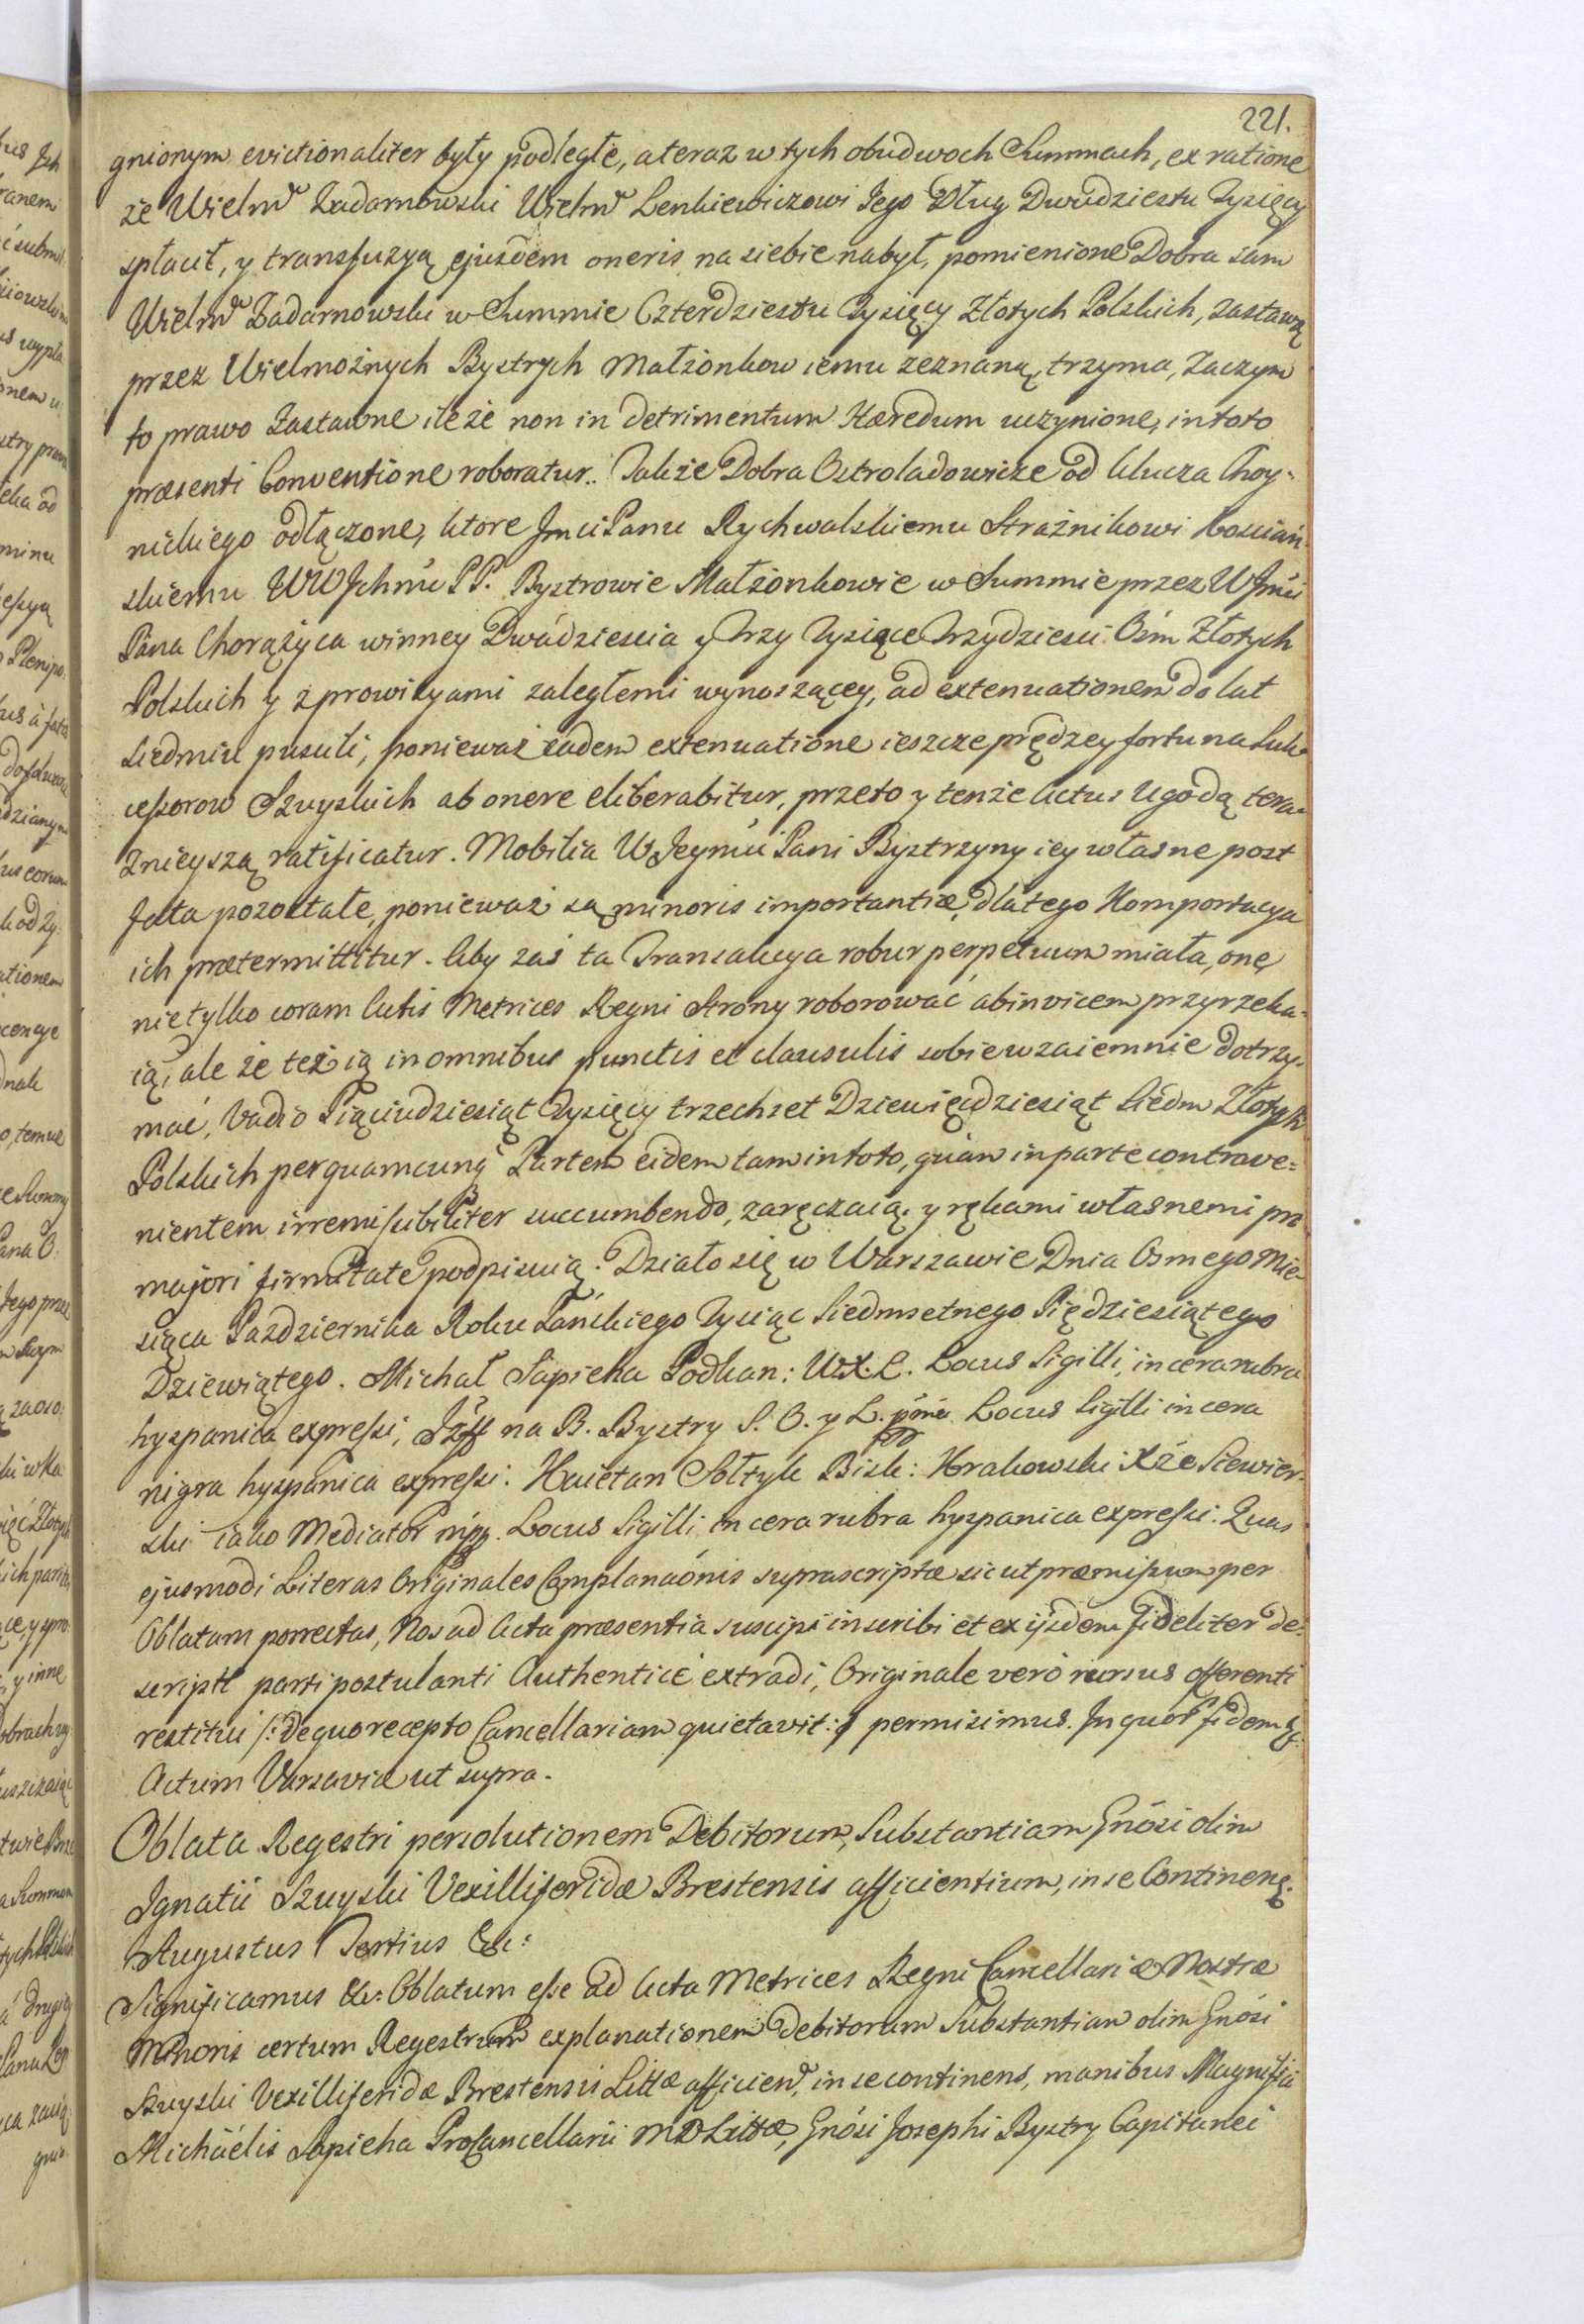 221.
gnionym evictionaliter były podległe, a teraz w tych obudwoch Summach, ex ratione
że Wielm̃ Zadarnowski Wielm̃ Lenkiewiczowi Jego Dług Dwudziestu Tysięcy
spłacił, y transfuzyą ejusdem oneris na siebie nabył, pomienione Dobra sam
Wielm̃ Zadarnowski w Summie Czterdziestu Tysięcy Złotych Polskich, zastawą
przez Wielmożnych Bystrych Małżonkow iemu zeznaną, trzyma, Zaczym
to prawo Zastawne ile że non in detrimentum Hæredum uczynione, in toto
præsenti Conventione roboratur. Także Dobra Ostroladowicze od klucza Choy-
nickiego odłączone, ktore Jmci Panu Rychwalskiemu Strażnikowi Kosciań-
skiemu WWJchmć PP. Bystrowie Małżonkowie w Summie przez WJmći
Pana Chorążyca winney Dwádziescia y Trzy Tysiące Trzydziesci Ośm Złotych
Polskich y z prowizyami zaległemi wynoszącey, ad extenuationem do lat
siedmiu puscili, ponieważ eadem extenuatione ieszcze prędzey fortuna Suk-
cessorow Szuyskich ab onere eliberabitur, przeto y tenże Actus Ugodą tera-
znieyszą ratificatur. Mobilia WJeymći Pani Bystrzyny iey własne post
fata pozostałe, ponieważ są minoris importantiæ, dlatego Komportacya
ich prætermittitur. Aby zaś ta Transakcya robur perpetuum miała, onę
nietylko coram Actis Metrices Regni Strony roborować abinvicem przyrzeka-
ią, ale że też ią in omnibus punctis et clausulis sobie wzaiemnie dotrzy-
mać, Vadio Piąciudziesiąt Tysięcy trzechset Dziewięćdziesiąt siedm Złotych
Polskich per quamcunq̃ Partem eidem tam in toto, quàm in parte contrave=
nientem irremissibiliter succumbendo, zaręczaią. y rękami własnemi pro
majori firmitate podpisuią. Działo się w Warszawie Dnia Osmego Mie-
siąca Pazdziernika Roku Pańskiego Tysiąc Siedmsetnego Pięćdziesiątego
Dziewiątego. Michał Sapieha Podkan: W.X.L. Locus Sigilli, in cera rubra
hyspanica expressi, Jozeff na B. Bystry S. O. y L. Locus Sigilli in cera
nigra hyspanica expressi. Kaietan Sołtyk Bisk: Krakowski Xże Siewier-
ski iako Mediator mpp. Locus Sigilli in cera rubra hyspanica expressi. Quas
ejusmodi Literas Originales Complanaõnis suprascriptæ sicut præmissum per
Oblatam porrectas, Nos ad Acta præsentia suscipi inscribi et ex ijsdem fideliter de-
scripti parti postulanti Authenticè extradi, Originale verò rursus offerenti
restitui /: de quo recepto Cancellariam quietavit :/ permisimus. In quor̃ fidem &:
Actum Varsaviæ ut supra.
Oblata Regestri persolutionem Debitorum, Substantiam Gnõsi olim
Ignatii Szuyski Vexilliferidæ Brestensis afficientium, in se Continens.
Augustus Tertius &c:
Significamus &c: Oblatum esse ad Acta Metrices Regni Cancellariæ Nostræ
Minoris certum Regestrum explanationem debitorum Substantiam olim Gnõsi
Szuyski Vexilliferidæ Brestensis Littæ afficien̄, in se continens, manibus Magnifici
Michaëlis Sapieha ProCancellarii MDLittæ, Gnõsi Josephi Bystry Capitanei